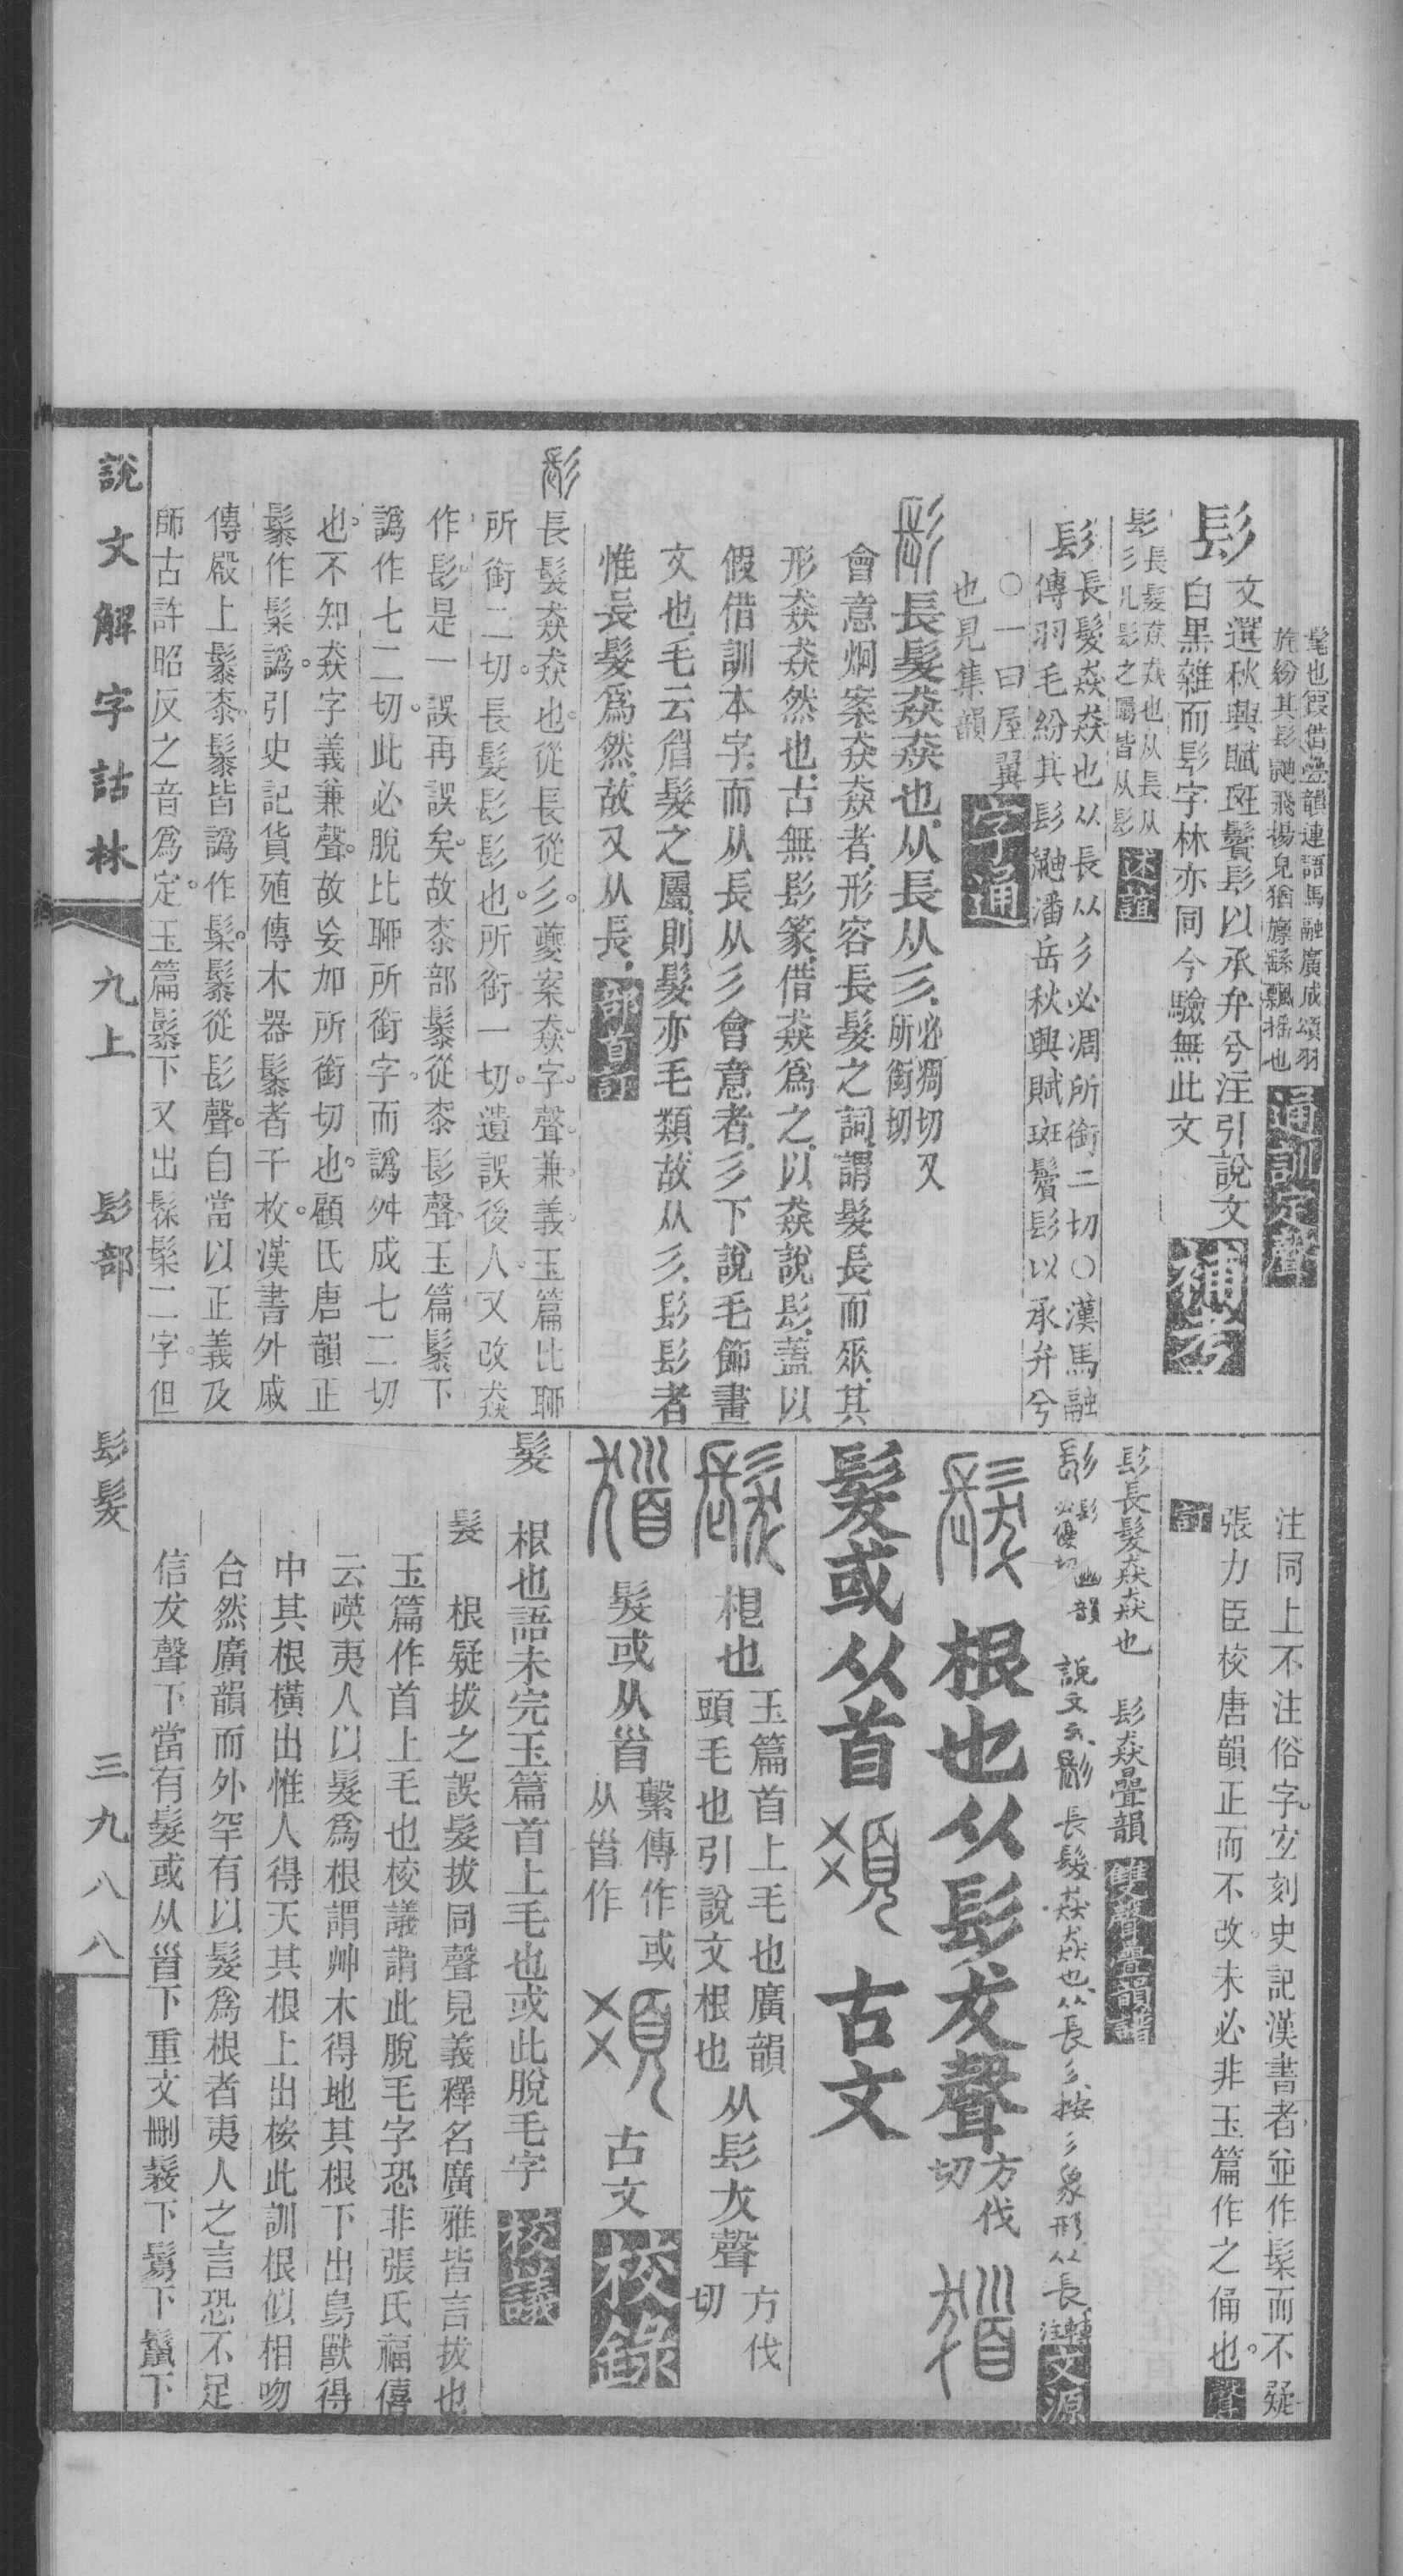 髦也叚借疊韻連語馬融廣成頌羽
旄紛其髟鼬飛揚皃猶旚繇飄搖也
通訓定聲
髟
文選秋興賦斑鬢髟以承弁兮注引說文
白黑雜而髟字林亦同今驗無此文
補考
髟長髮猋猋也从長从
彡凡髟之屬皆从髟
髟長髮猋猋也从長从彡必凋所銜二切○漢馬融
傳羽毛紛其髟鼬潘岳秋興賦斑鬢髟以承弁兮
○一曰屋翼
也見集韻
字通
髟長髮猋猋也从長从彡必凋切又
所銜切
會意炯案猋猋者形容長髮之詞謂髮長而眾其
形猋猋然也古無髟篆借猋爲之以猋說髟蓋以
假借訓本字而从長从彡會意者彡下說毛飾畫
文也毛云眉髮之屬則髮亦毛類故从彡髟髟者
惟長髮爲然故又从長
部首訂
髟長髮猋猋也從長從彡夔案猋字聲兼義玉篇比聊
所銜二切長髮髟髟也所銜一切遺誤後人又改猋
作髟是一誤再誤矣故桼部䰍從桼髟聲玉篇䰍下
譌作七二切此必脫比聊所銜字而譌舛成七二切
也不知猋字義兼聲故妄加所銜切也顧氏唐韻正
䰍作髹譌引史記貨殖傳木器䰍者千枚漢書外戚
傳殿上䰍桼䰍皆譌作髹䰍從髟聲自當以正義及
師古許昭反之音爲定玉篇䰍下又出髤髹二字但
注同上不注俗字玄刻史記漢書者並作髹而不疑
張力臣校唐韻正而不改未必非玉篇作之俑也
聲
訂
髟長髮猋猋也 髟猋疊韻
雙聲疊韻譜
髟必優切幽韻 說文云髟長髮猋猋也从長彡按彡象形从長
注
文源
髮 根也从髟犮聲方伐
切
髮或从首 古文
髮 根也玉篇首上毛也廣韻
頭毛也引說文根也
从髟犮聲方伐
切
髮或从𩠐繫傳作或
从𩠐作
古文
校錄
髮 根也語未完玉篇首上毛也或此脫毛字
校議
髮 根疑拔之誤髮拔同聲見義釋名廣雅皆言拔也
玉篇作首上毛也校議謂此脫毛字恐非張氏福僖
云嘆夷人以髮爲根謂艸木得地其根下出鳥獸得
中其根橫出惟人得天其根上出桉此訓根似相吻
合然廣韻而外罕有以髮爲根者夷人之言恐不足
信犮聲下當有髮或从𩠐下重文刪髲下鬄下鬣下
說文解字詁林
九上
髟部
髟髮
三九八八